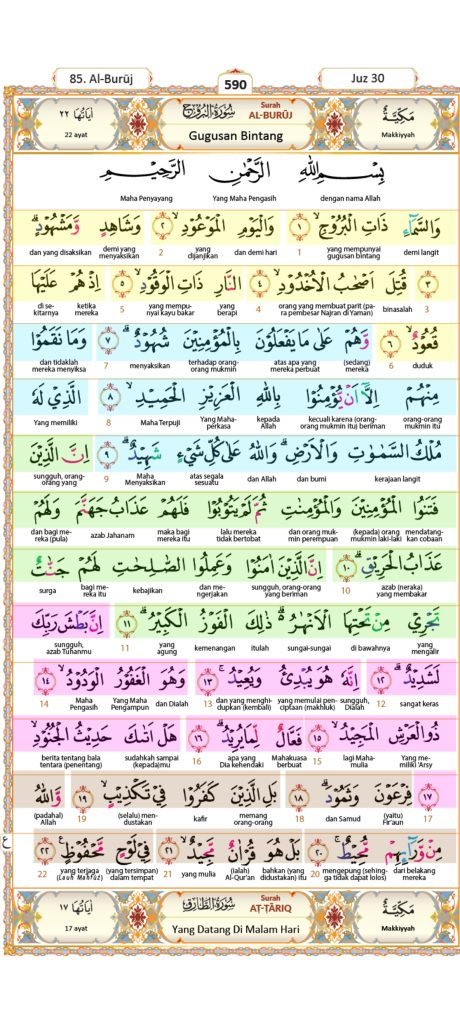 85. Al-Burūj 590 Juz 30
مَكِّيَّةٌ سُوْرَةُ الْبُرُوْجِ اٰيَاتُهَا ٢٢
Makkiyyah Surah AL-BURŪJ 22 ayat
Gugusan Bintang
بِسْمِ اللّٰهِ الرَّحْمٰنِ الرَّحِيْمِ
dengan nama Allah Yang Maha Pengasih Maha Penyayang
وَالسَّمَاۤءِ ذَاتِ الْبُرُوْجِۙ ١ وَالْيَوْمِ الْمَوْعُوْدِۙ ٢ وَشَاهِدٍ وَّمَشْهُوْدٍۗ
demi langit yang mempunyai gugusan bintang 1 dan demi hari yang dijanjikan 2 demi yang menyaksikan dan yang disaksikan
٣ قُتِلَ اَصْحٰبُ الْاُخْدُوْدِۙ ٤ النَّارِ ذَاتِ الْوَقُوْدِۙ ٥ اِذْ هُمْ عَلَيْهَا
3 binasalah orang yang membuat parit (para pembesar Najran di Yaman) 4 yang berapi yang mempunyai kayu bakar 5 ketika mereka di sekitarnya
قُعُوْدٌۙ ٦ وَّهُمْ عَلٰى مَا يَفْعَلُوْنَ بِالْمُؤْمِنِيْنَ شُهُوْدٌۗ ٧ وَمَا نَقَمُوْا
duduk 6 (sedang) mereka atas apa yang mereka perbuat terhadap orang-orang mukmin menyaksikan 7 dan tidaklah mereka menyiksa
مِنْهُمْ اِلَّآ اَنْ يُّؤْمِنُوْا بِاللّٰهِ الْعَزِيْزِ الْحَمِيْدِۙ ٨ الَّذِيْ لَهٗ
orang-orang mukmin itu kecuali karena (orang-orang mukmin itu) beriman kepada Allah Yang Maha-perkasa Maha Terpuji 8 Yang memiliki
مُلْكُ السَّمٰوٰتِ وَالْاَرْضِۗ وَاللّٰهُ عَلٰى كُلِّ شَيْءٍ شَهِيْدٌۗ ٩ اِنَّ الَّذِيْنَ
kerajaan langit dan bumi dan Allah atas segala sesuatu Maha Menyaksikan 9 sungguh, orang-orang yang
فَتَنُوا الْمُؤْمِنِيْنَ وَالْمُؤْمِنٰتِ ثُمَّ لَمْ يَتُوْبُوْا فَلَهُمْ عَذَابُ جَهَنَّمَ وَلَهُمْ
mendatangkan cobaan (kepada) orang mukmin laki-laki dan orang mukmin perempuan lalu mereka tidak bertobat maka bagi mereka itu azab Jahanam dan bagi mereka (pula)
عَذَابُ الْحَرِيْقِۗ ١٠ اِنَّ الَّذِيْنَ اٰمَنُوْا وَعَمِلُوا الصّٰلِحٰتِ لَهُمْ جَنّٰتٌ
azab (neraka) yang membakar 10 sungguh, orang-orang yang beriman dan mengerjakan kebajikan bagi mereka itu surga
تَجْرِيْ مِنْ تَحْتِهَا الْاَنْهٰرُۗ ذٰلِكَ الْفَوْزُ الْكَبِيْرُۗ ١١ اِنَّ بَطْشَ رَبِّكَ
yang mengalir di bawahnya sungai-sungai itulah kemenangan yang agung 11 sungguh, azab Tuhanmu
لَشَدِيْدٌۗ ١٢ اِنَّهٗ هُوَ يُبْدِئُ وَيُعِيْدُۚ ١٣ وَهُوَ الْغَفُوْرُ الْوَدُوْدُۙ ١٤
sangat keras 12 sungguh, Dialah yang memulai penciptaan (makhluk) dan yang menghidupkan (kembali) 13 dan Dialah Yang Maha Pengampun Maha Pengasih 14
ذُو الْعَرْشِ الْمَجِيْدُۙ ١٥ فَعَّالٌ لِّمَا يُرِيْدُۗ ١٦ هَلْ اَتٰىكَ حَدِيْثُ الْجُنُوْدِۙ
Yang memiliki 'Arsy lagi Maha-mulia 15 Mahakuasa berbuat apa yang Dia kehendaki 16 sudahkah sampai (kepada)mu berita tentang bala tentara (penentang)
١٧ فِرْعَوْنَ وَثَمُوْدَۗ ١٨ بَلِ الَّذِيْنَ كَفَرُوْا فِيْ تَكْذِيْبٍۙ ١٩ وَّاللّٰهُ
17 (yaitu) Fir'aun dan Samud 18 memang orang-orang kafir (selalu) mendustakan 19 (padahal) Allah
مِنْ وَّرَاۤىِٕهِمْ مُّحِيْطٌۚ ٢٠ بَلْ هُوَ قُرْاٰنٌ مَّجِيْدٌۙ ٢١ فِيْ لَوْحٍ مَّحْفُوْظٍ ٢٢ ع
dari belakang mereka mengepung (sehingga tidak dapat lolos) 20 bahkan (yang didustakan) itu (ialah) Al-Qur'an yang mulia 21 (yang tersimpan) dalam tempat yang terjaga (Lauh Mahfūẓ) 22
مَكِّيَّةٌ سُوْرَةُ الطَّارِقِ اٰيَاتُهَا ١٧
Makkiyyah Surah AṬ-ṬĀRIQ 17 ayat
Yang Datang Di Malam Hari